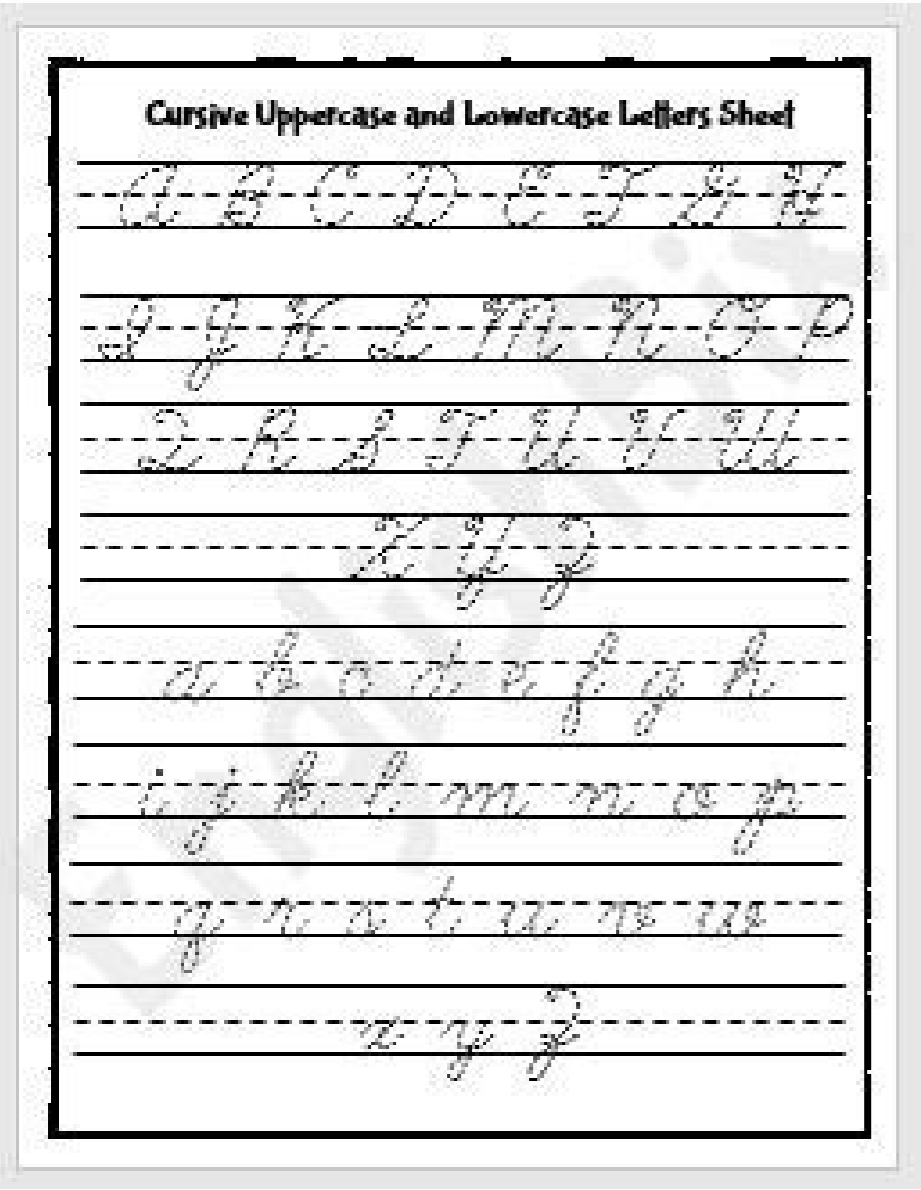 Cursive Uppercase and Lowercase Letters Sheet
A B C D E F G H
I J K L M N O P
Q R S T U V W
X Y Z
a b c d e f g h
i j k l m n o p
q r s t u v w
x y z